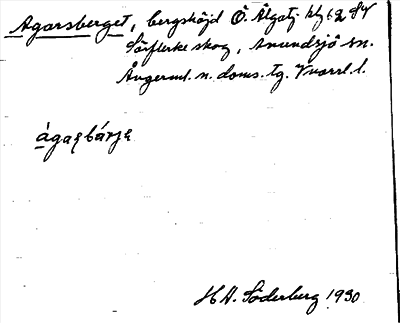 Agarsberget, bergshöjd Ö. Älgatj. blg 62 SV
Sörflärke skog, Anundsjö sn.
Ångerml. n. doms. tg. Vnorrl. l.
ágaʀbárjə
H H. Söderberg 1930